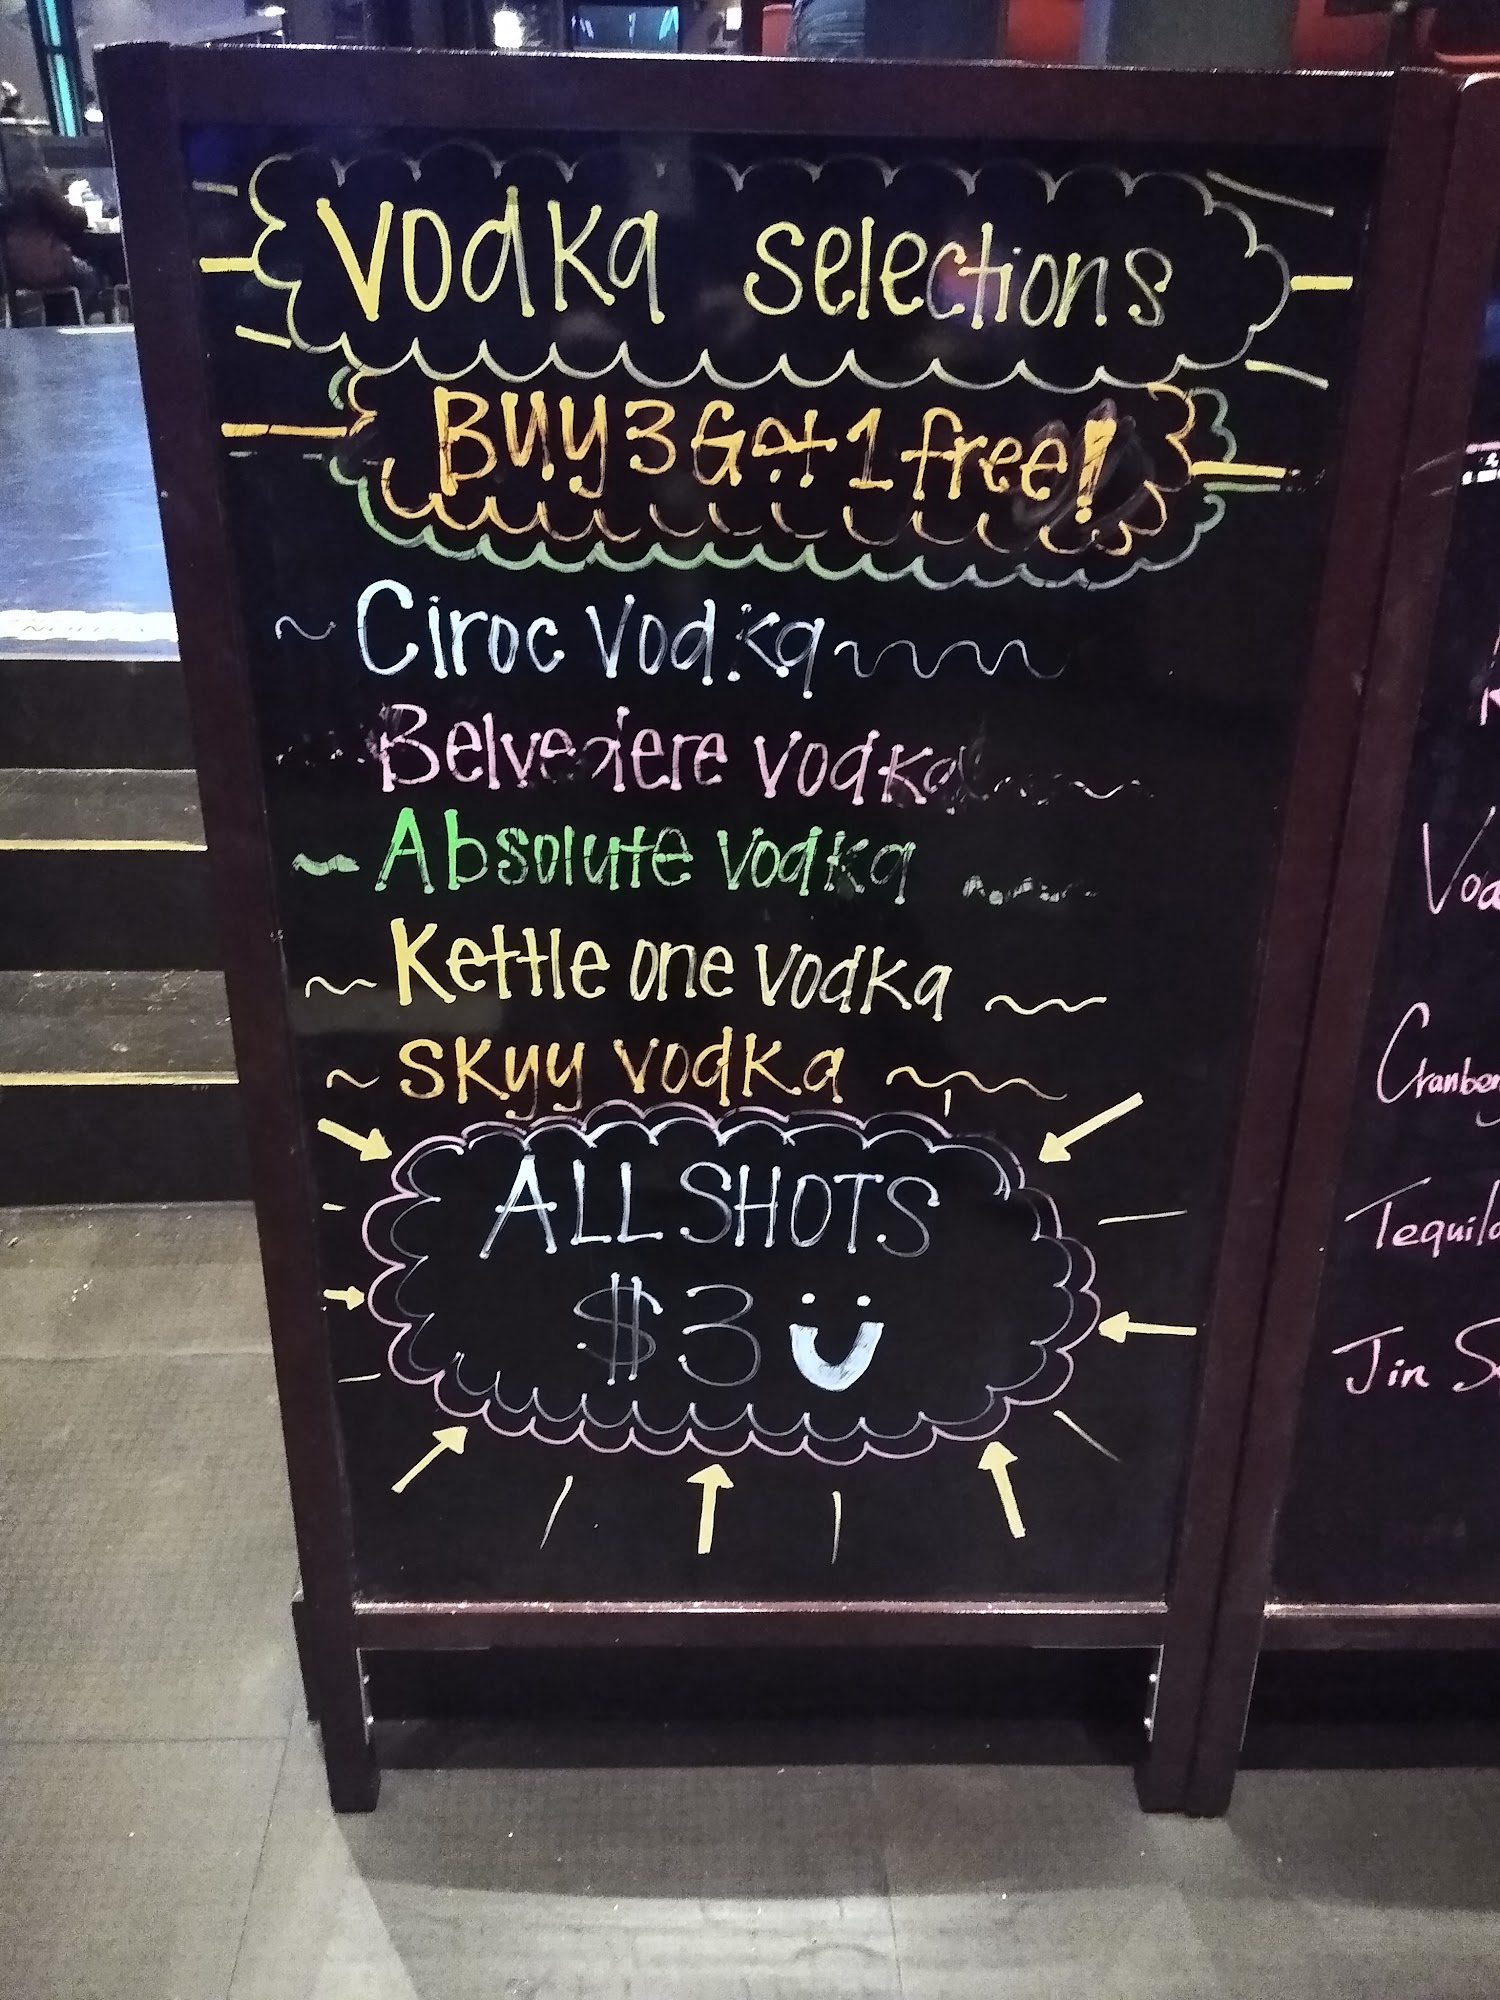 Vodka selections
Buy 3 Get 1 free!
Ciroc Vodka
Belvedere Vodka
Absolute Vodka
Kettle one Vodka
SKyy Vodka
ALL SHOTS
$3
Tequila
Jin